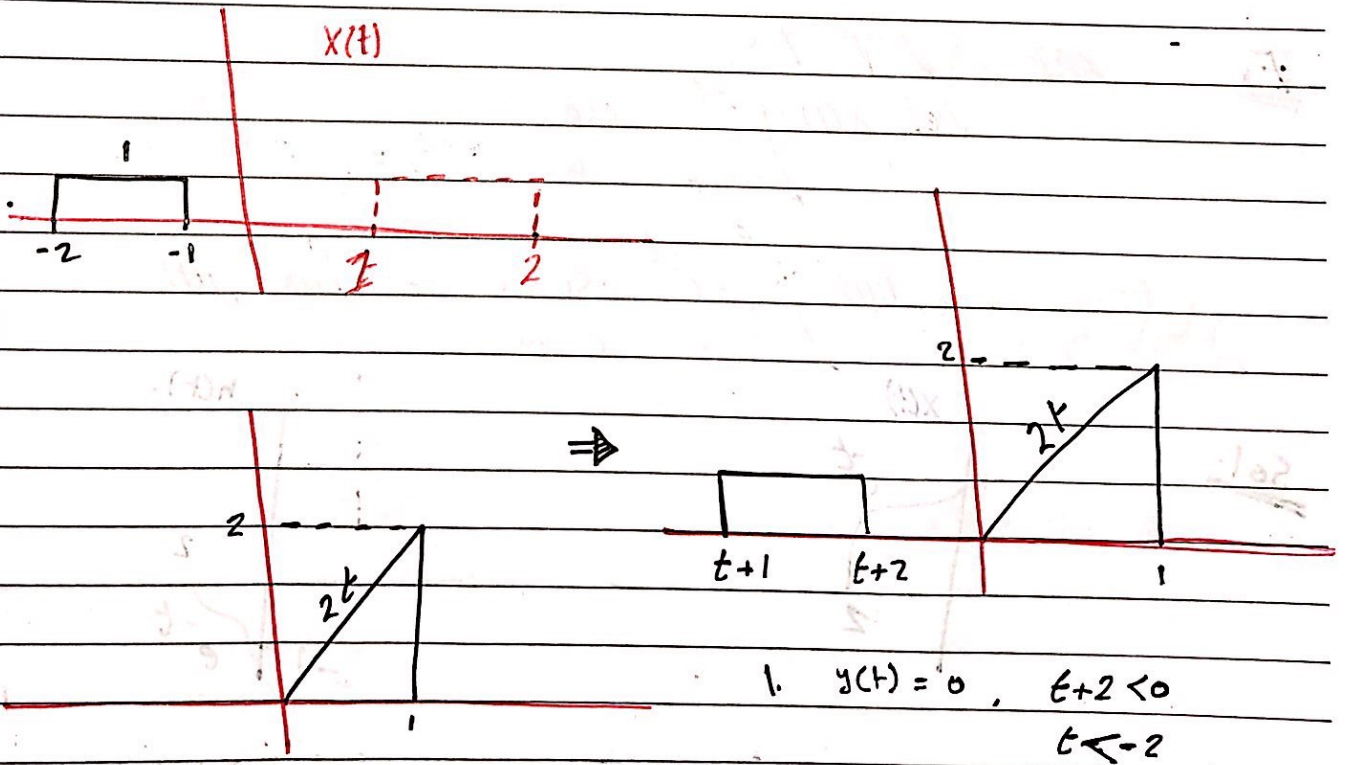 X(t)
1
-2 -1 1 2
2
2t
1
⇒
2
2t
t+1 t+2 1
1. y(t) = 0 , t+2 <0
t<-2